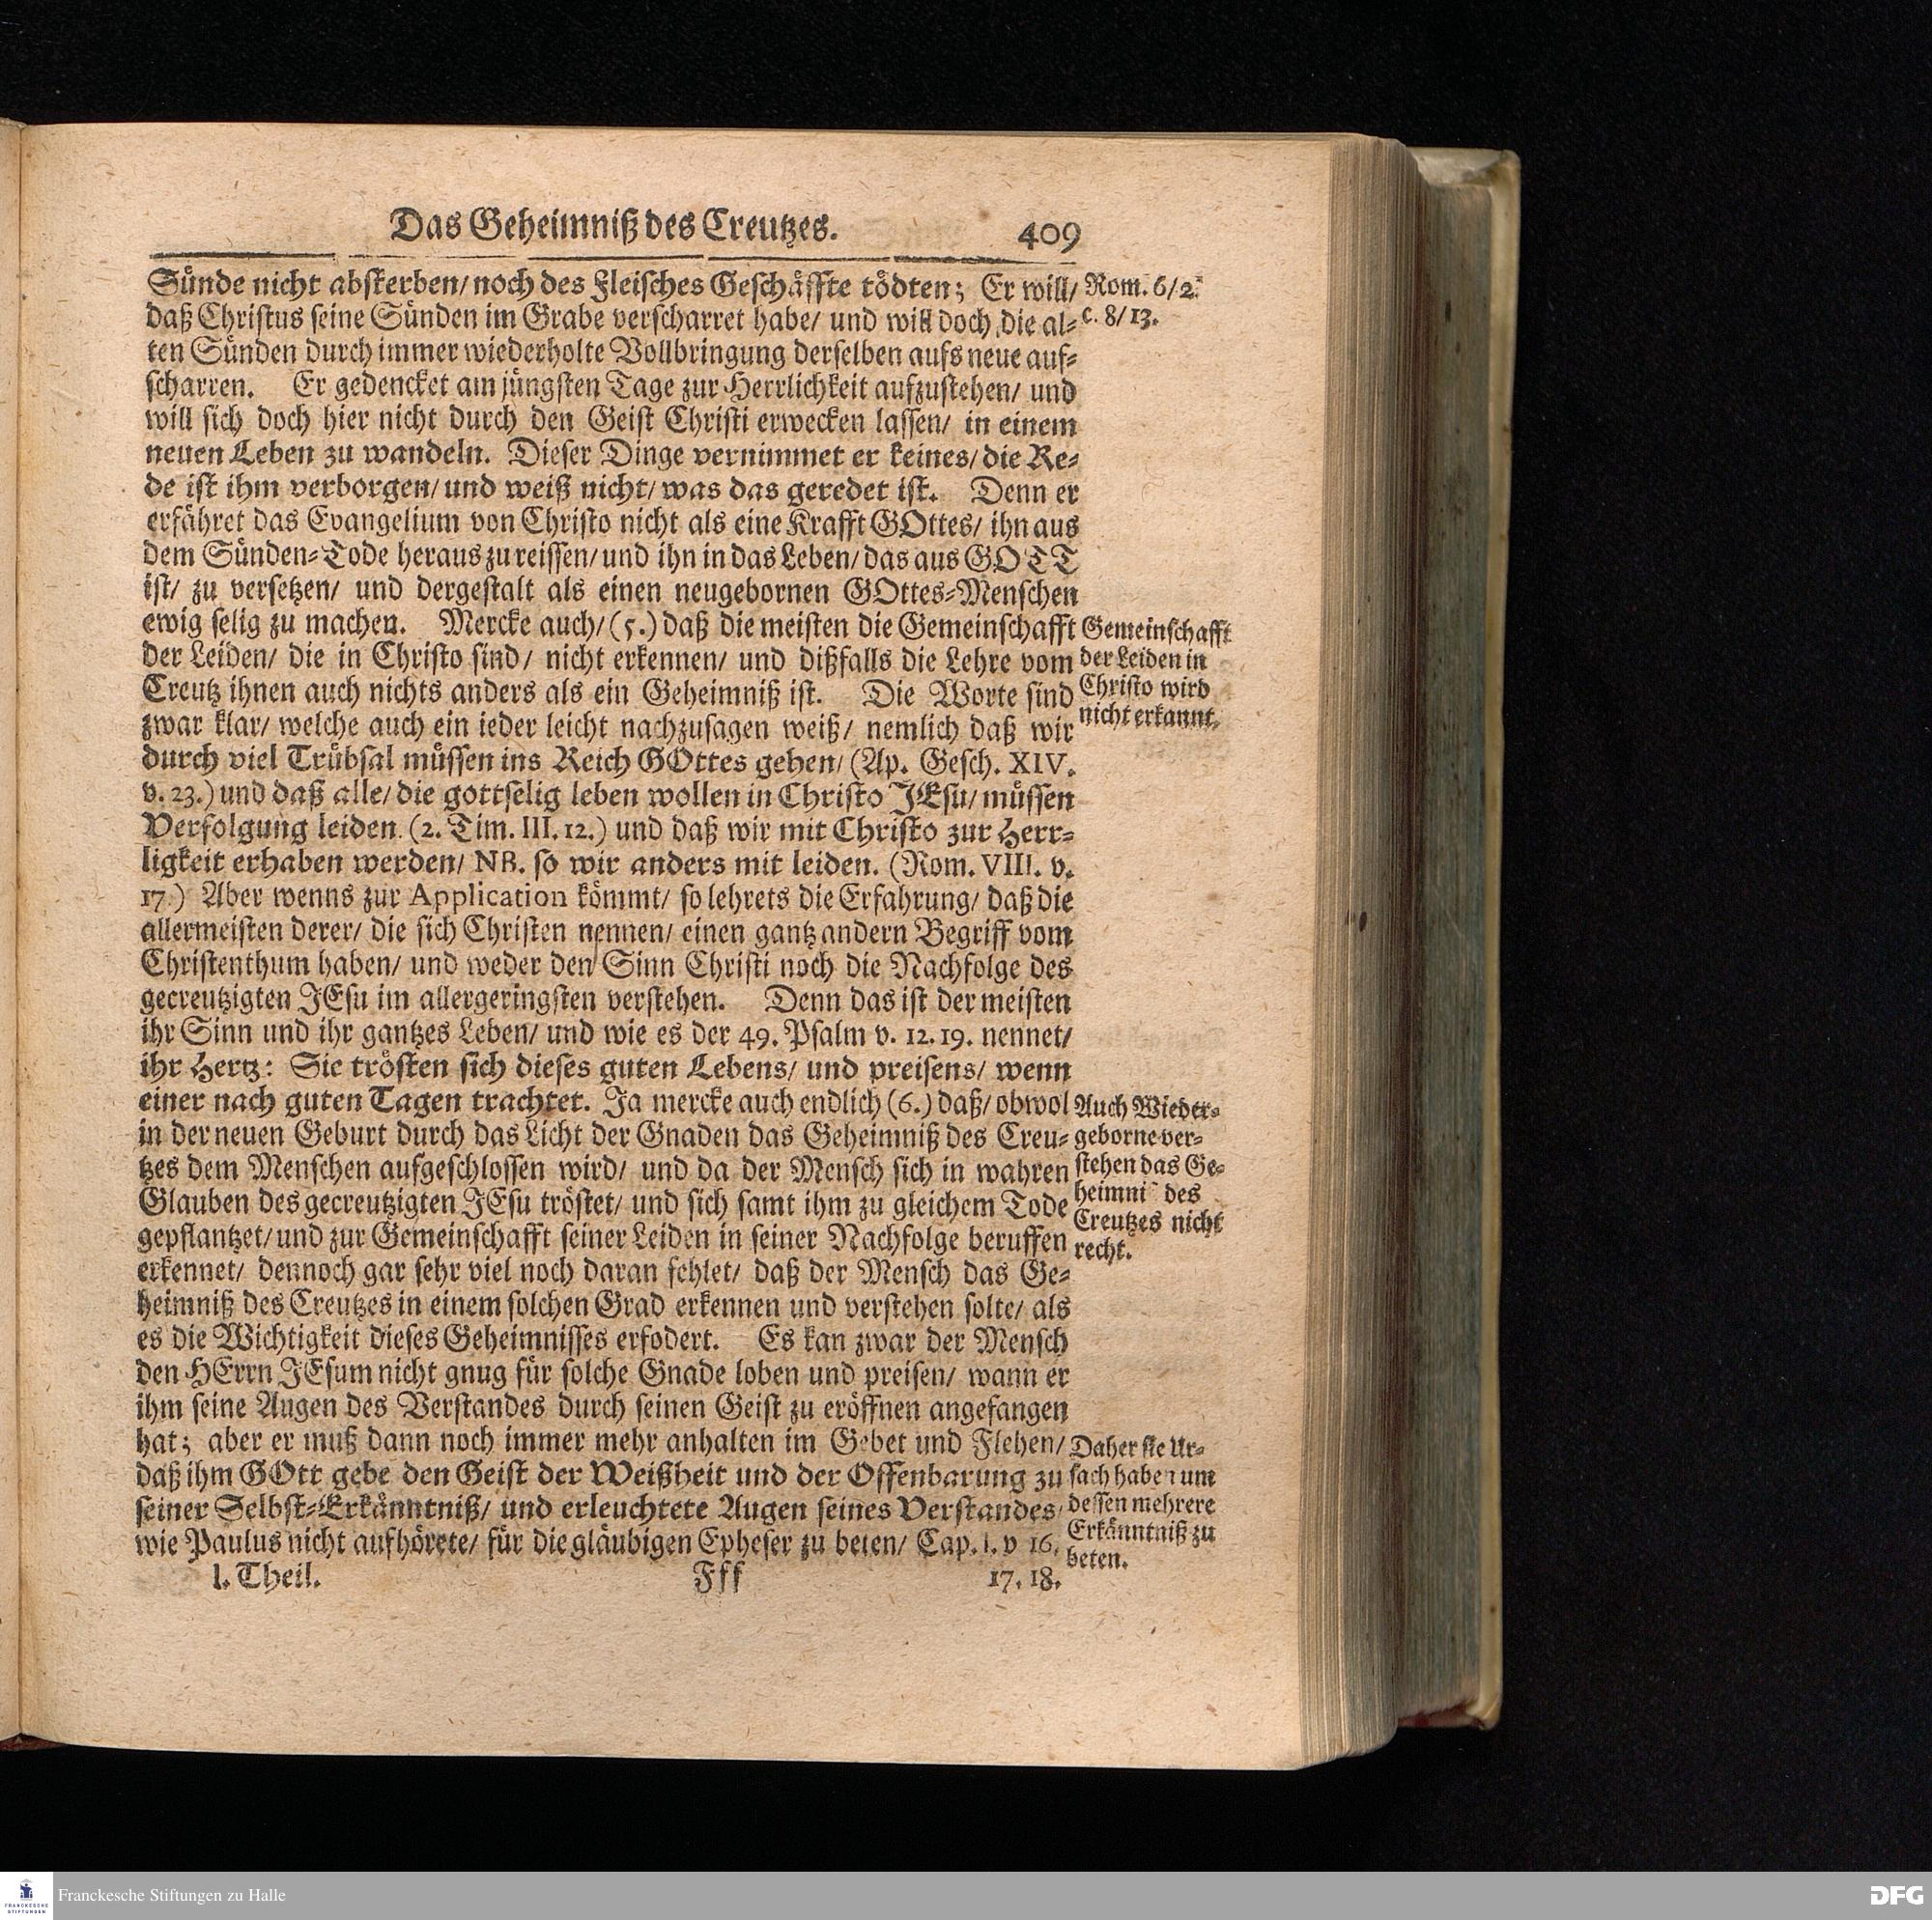 Das Geheimniß des Creutzes. 409
Sünde nicht absterben/ noch des Fleisches Geschäffte tödten; Er will/
daß Christus seine Sünden im Grabe verscharret habe/ und will doch die al-
ten Sünden durch immer wiederholte Vollbringung derselben aufs neue auf-
scharren. Er gedencket am jüngsten Tage zur Herrlichkeit aufzustehen/ und
will sich doch hier nicht durch den Geist Christi erwecken lassen/ in einem
neuen Leben zu wandeln. Dieser Dinge vernimmet er keines/ die Re-
de ist ihm verborgen/ und weiß nicht/ was das geredet ist. Denn er
erfähret das Evangelium von Christo nicht als eine Krafft GOttes/ ihn aus
dem Sünden-Tode heraus zu reissen/ und ihn in das Leben/ das aus GOTT
ist/ zu versetzen/ und dergestalt als einen neugebornen GOttes-Menschen
ewig selig zu machen. Mercke auch/ (5.) daß die meisten die Gemeinschafft
der Leiden/ die in Christo sind/ nicht erkennen/ und dißfalls die Lehre vom
Creutz ihnen auch nichts anders als ein Geheimniß ist. Die Worte sind
zwar klar/ welche auch ein ieder leicht nachzusagen weiß/ nemlich daß wir
durch viel Trübsal müssen ins Reich GOttes gehen/ (Ap. Gesch. XIV.
v. 23.) und daß alle/ die gottselig leben wollen in Christo JEsu/ müssen
Verfolgung leiden (2. Tim. III. 12.) und daß wir mit Christo zur Herr-
ligkeit erhaben werden/ NB. so wir anders mit leiden. (Rom. VIII. v.
17.) Aber wenns zur Application kömmt/ so lehrets die Erfahrung/ daß die
allermeisten derer/ die sich Christen nennen/ einen gantz andern Begriff vom
Christenthum haben/ und weder den Sinn Christi noch die Nachfolge des
gecreutzigten JEsu im allergeringsten verstehen. Denn das ist der meisten
ihr Sinn und ihr gantzes Leben/ und wie es der 49. Psalm v. 12. 19. nennet/
ihr Hertz: Sie trösten sich dieses guten Lebens/ und preisens/ wenn
einer nach guten Tagen trachtet. Ja mercke auch endlich (6.) daß/ obwol
in der neuen Geburt durch das Licht der Gnaden das Geheimniß des Creu-
tzes dem Menschen aufgeschlossen wird/ und da der Mensch sich in wahren
Glauben des gecreutzigten JEsu tröstet/ und sich samt ihm zu gleichem Tode
gepflantzet/ und zur Gemeinschafft seiner Leiden in seiner Nachfolge beruffen
erkennet/ dennoch gar sehr viel noch daran fehlet/ daß der Mensch das Ge-
heimniß des Creutzes in einem solchen Grad erkennen und verstehen solte/ als
es die Wichtigkeit dieses Geheimnisses erfodert. Es kan zwar der Mensch
den HErrn JEsum nicht gnug für solche Gnade loben und preisen/ wann er
ihm seine Augen des Verstandes durch seinen Geist zu eröffnen angefangen
hat; aber er muß dann noch immer mehr anhalten im Gebet und Flehen/
daß ihm GOtt gebe den Geist der Weißheit und der Offenbarung zu
seiner Selbst-Erkänntniß/ und erleuchtete Augen seines Verstandes/
wie Paulus nicht aufhörete/ für die gläubigen Epheser zu beten/ Cap. I. v 16.
I. Theil. Fff 17. 18.
Rom. 6/2.
c. 8/13.
Gemeinschafft
der Leiden in
Christo wird
nicht erkannt.
Auch Wieder-
geborne ver-
stehen das Ge-
heimni des
Creutzes nicht
recht.
Daher sie Ur-
sach haben um
dessen mehrere
Erkänntniß zu
beten.
FRANCKESCHE
STIFTUNGEN
Franckesche Stiftungen zu Halle
DFG